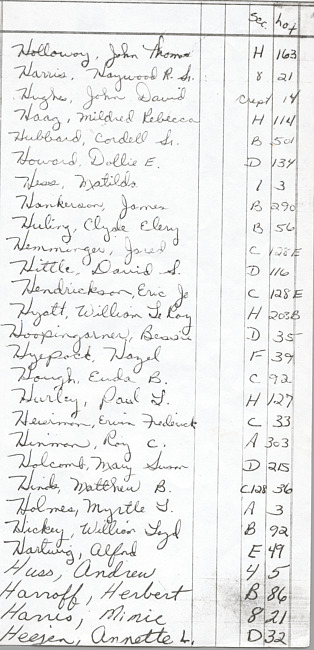 Sec. Lot
Holloway, John Thomas H 163
Harris, Haywood R. Sr. 8 21
Hughs, John David Crept 14
Haag, Mildred Rebecca H 114
Hubbard, Cordell Sr. B 501
Howard, Dollie E. D 134
Hess, Matilda 1 3
Hankerson, James B 290
Huling, Clyde Elery B 56
Hemminger, Jared C 128E
Hittle, David S. D 116
Hendrickson, Eric Jo C 128E
Hyatt, William LeRoy H 203B
Hoopingarner, Bessie D 35
Hyepock, Hazel F 39
Hough, Euda B. C 92
Hurley, Paul L. H 127
Heirman, Erwin Federick C 33
Hinman, Roy C. A 303
Holcomb, Mary Susan D 215
Hinds, Matthew B. C128 36
Holmes, Myrtle T. A 3
Hickey, William B 92
Hartwig, Alfred E 49
Huss, Andrew 4 5
Harroff, Herbert B 86
Harris, Minie 8 21
Heejen, Annette L. D 32